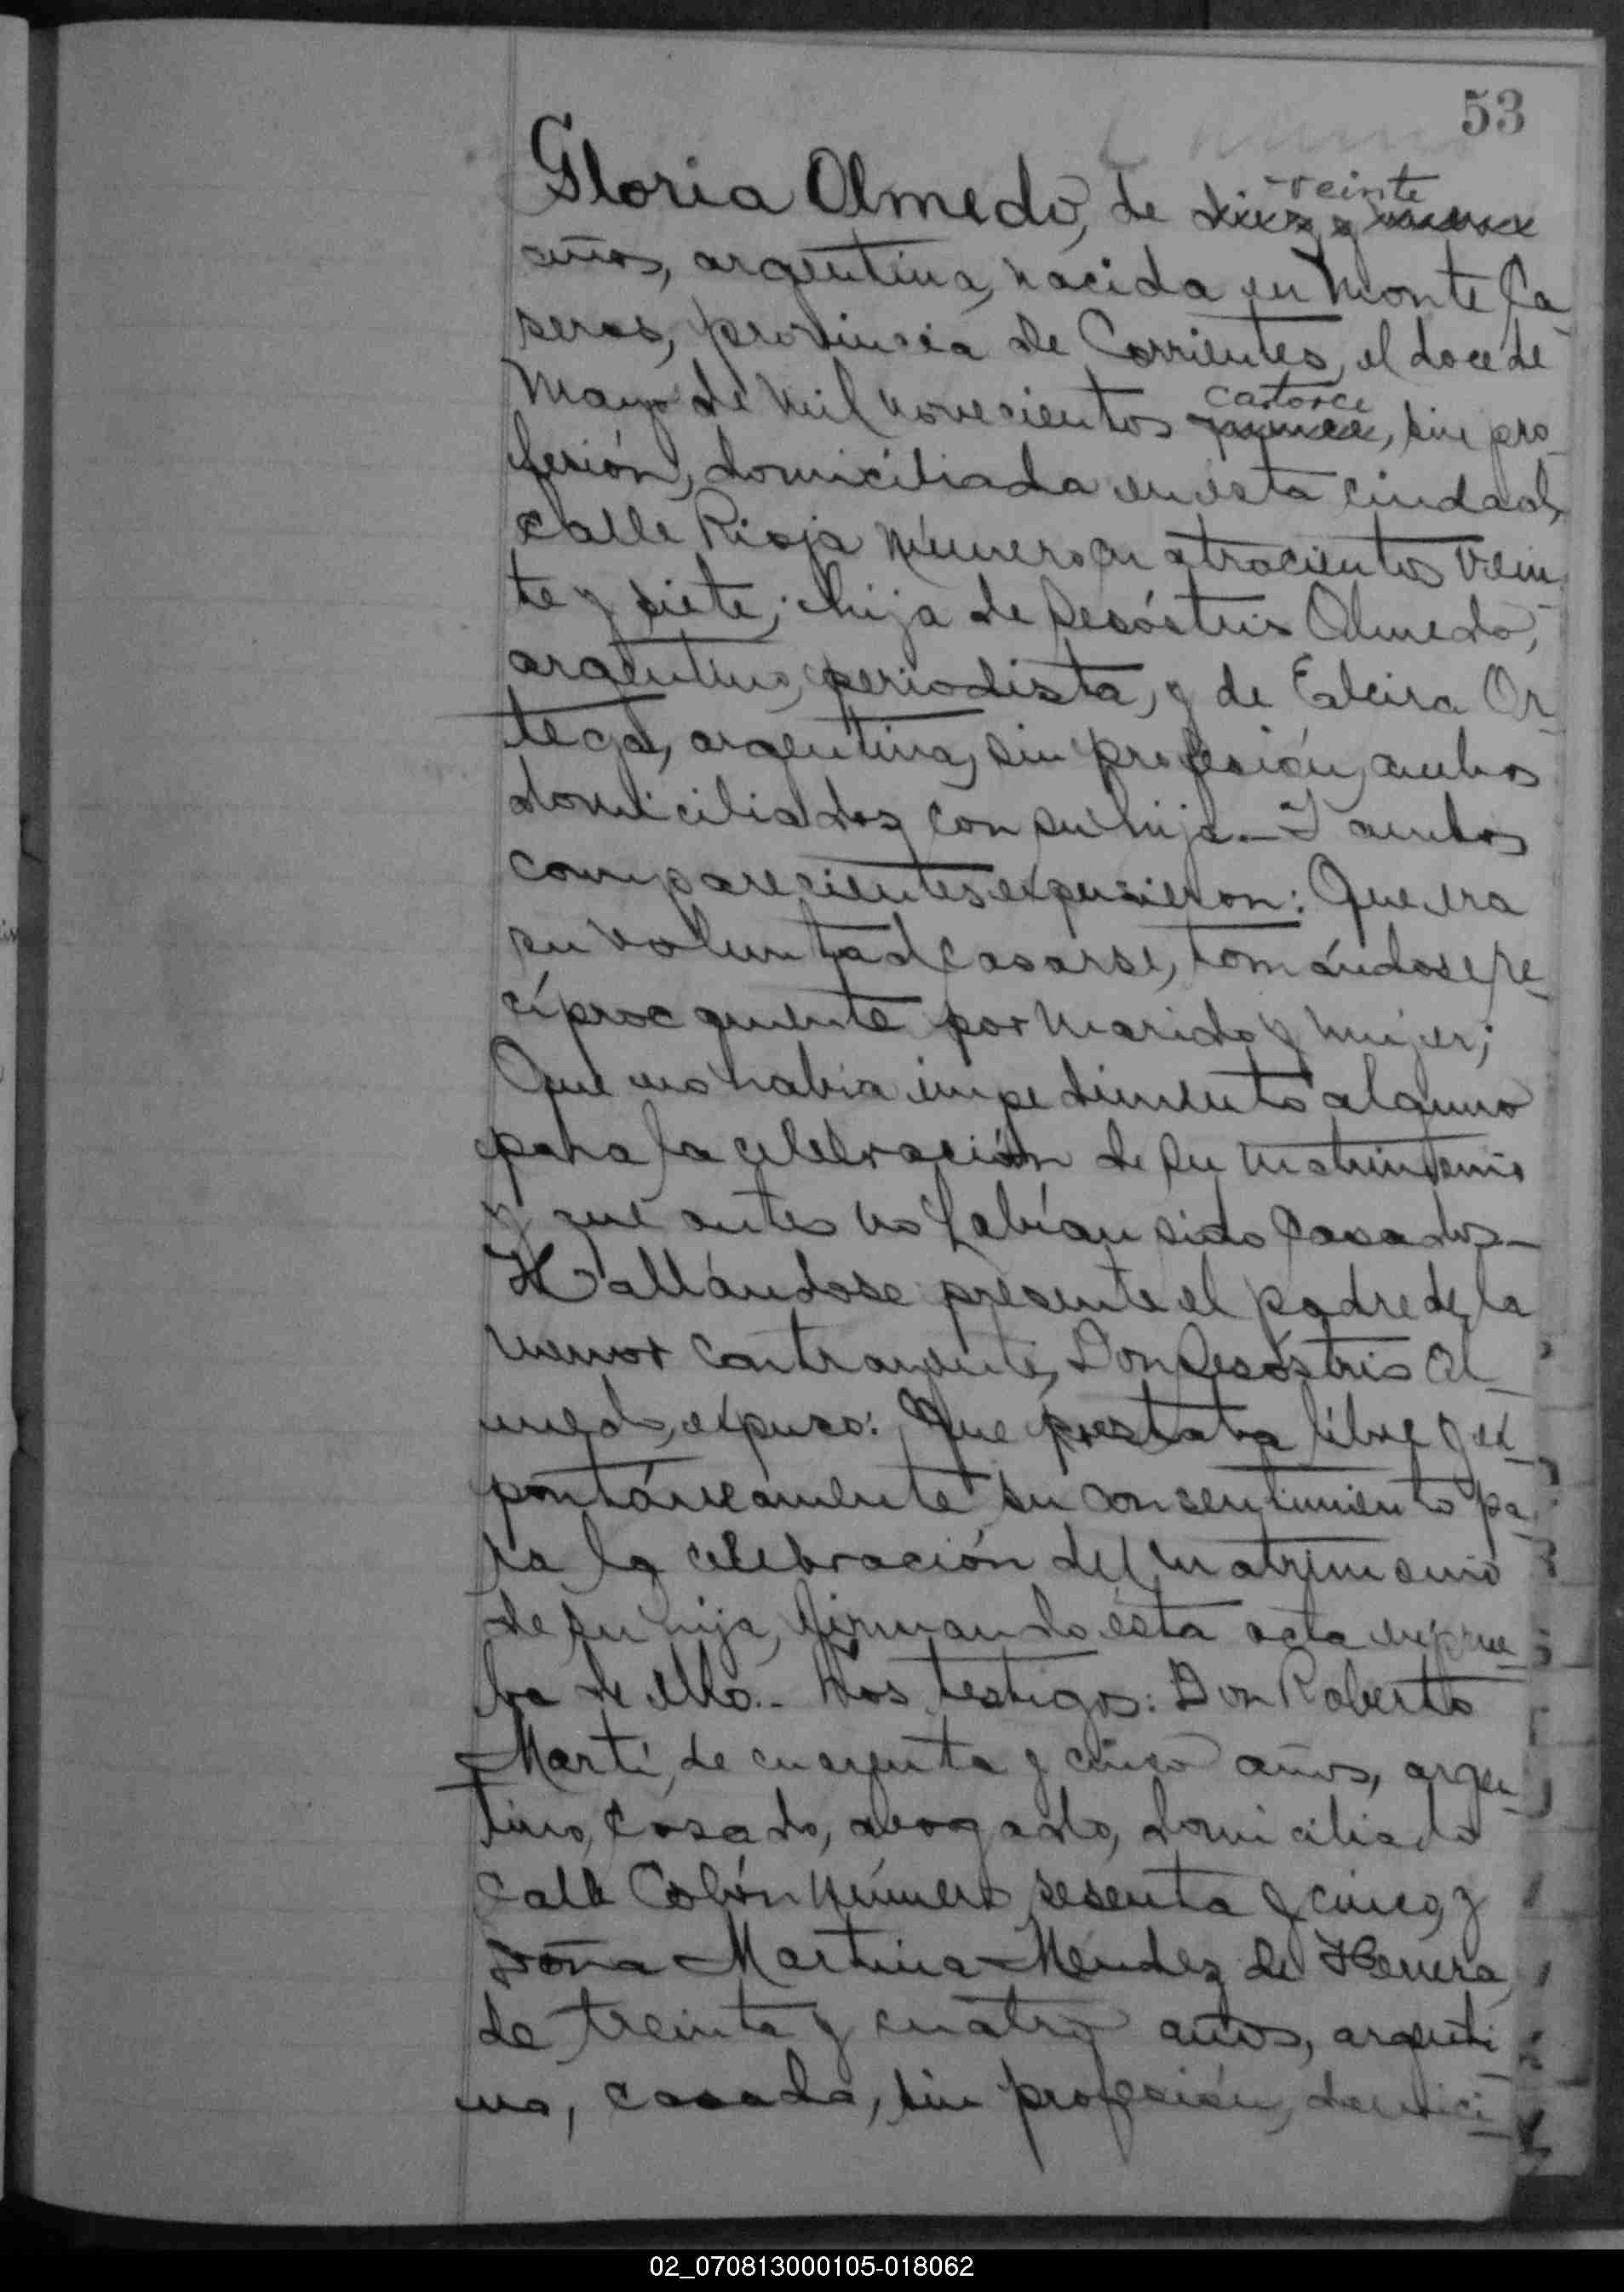 53
Gloria Olmedo, de diez y nueve veinte
años, argentina, nacida en Monte Ca-
seros, provincia de Corrientes, el doce de
Mayo de mil novecientos quince catorce, sin pro-
fesión, domiciliada en esta ciudad,
calle Rioja número cuatrocientos vein-
te y siete; hija de Sesóstris Olmedo,
argentino, periodista, y de Elcira Or-
tega, argentina, sin profesión, ambos
domiciliados con su hija.- I ambos
comparecientes expusieron: Que era
su voluntad casarse, tomándose re-
cíprocamente por marido y mujer;
Que no había impedimento alguno
para la celebración de su matrimonio
y que antes no habían sido casados.-
Hallándose presente el padre de la
menor contrayente, Don Sesóstris Ol-
medo, expuso: Que prestaba libre y ex-
pontáneamente su consentimiento pa-
ra la celebración del matrimonio
de su hija, firmando ésta acta en prue-
ba de ello.- Los testigos: Don Roberto
Martí, de cuarenta y cinco años, argen-
tino, casado, abogado, domiciliado
calle Colón número sesenta y cinco, y
Doña Martina Méndez de Herrera,
de treinta y cuatro años, argenti
na, casada, sin profesión, domici-
02_070813000105-018062